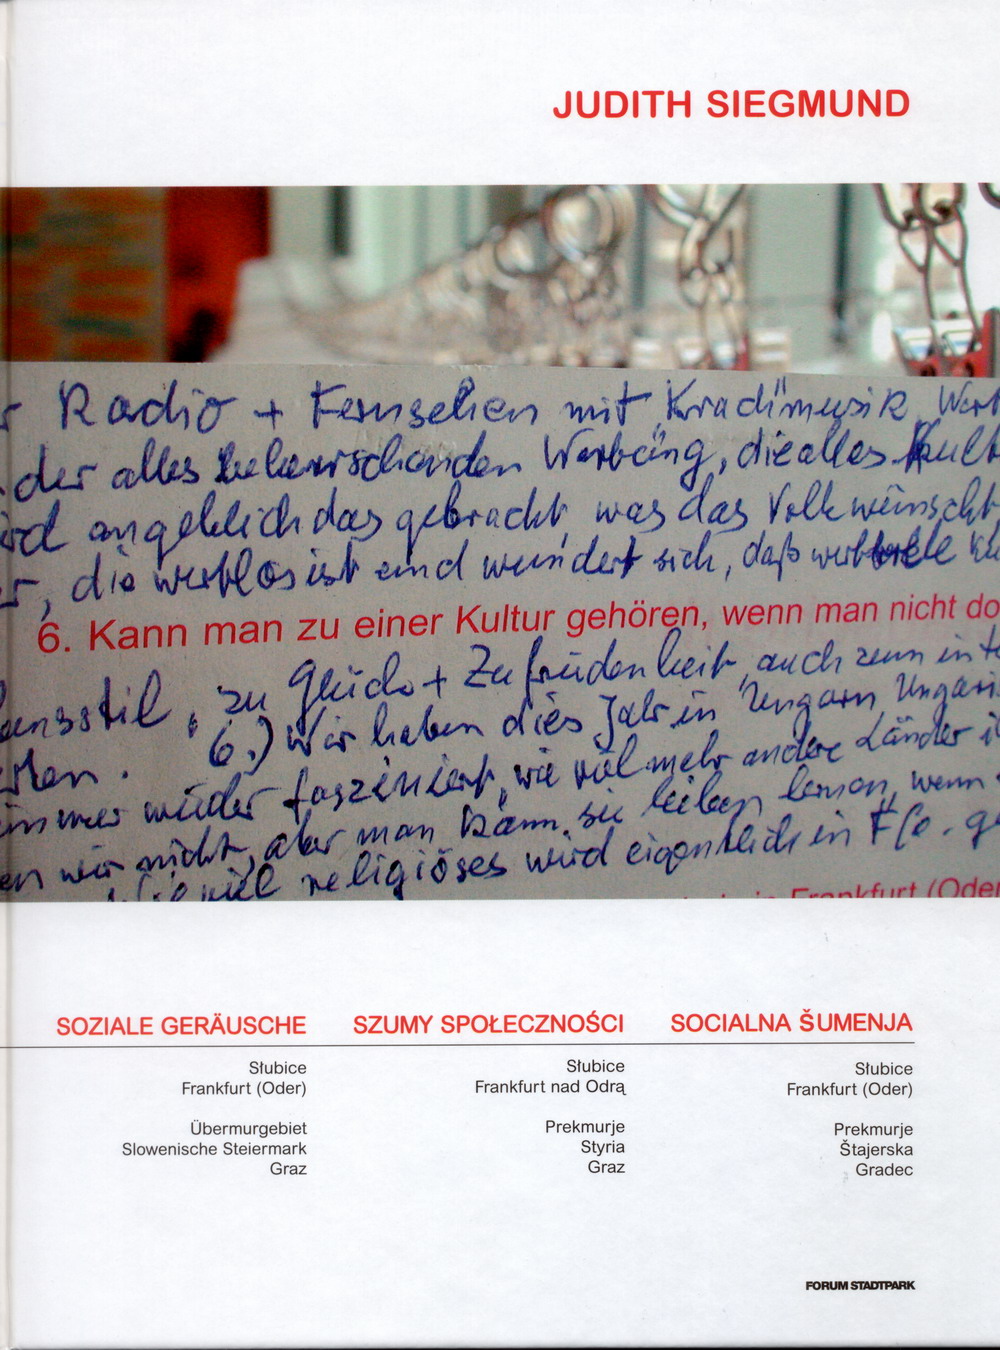 JUDITH SIEGMUND
r Radio + Fernsehen mit "Kradi"musik Wert
der alles beherrschenden Werbung, die alles Kult
ird angeblich das gebracht, was das Volk wünscht
er, die wertlos ist und wundert sich, daß
6. Kann man zu einer Kultur gehören, wenn man nicht do
ensstil, zu Glück + Zufriedenheit, auch zum
6.) Wir haben dies Jahr in Ungarn Ungari
immer wieder fasziniert, wie viel mehr andere Länder
en wir nicht, aber man kann sie lieben lernen, wenn
viel religiöses wird eigentlich in FfO. ge
in Frankfurt (Oder
SOZIALE GERÄUSCHE
Słubice
Frankfurt (Oder)
Übermurgebiet
Slowenische Steiermark
Graz
SZUMY SPOŁECZNOŚCI
Słubice
Frankfurt nad Odrą
Prekmurje
Styria
Graz
SOCIALNA ŠUMENJA
Słubice
Frankfurt (Oder)
Prekmurje
Štajerska
Gradec
FORUM STADTPARK